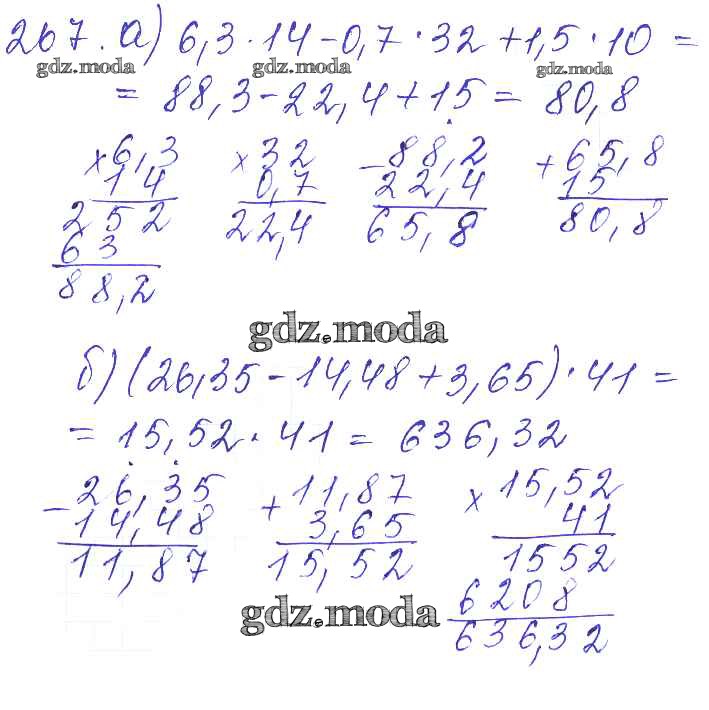 267. а) 6,3·14-0,7·32+1,5·10=
gdz.moda gdz.moda gdz.moda
= 88,3-22,4+15 = 80,8
×6,3 ×32 -88,2 +65,8
14 0,7 22,4 15
252 22,4 65,8 80,8
63
88,2
gdz.moda
б) (26,35-14,48+3,65)·41=
= 15,52·41 = 636,32
-26,35 +11,87 ×15,52
14,48 3,65 41
11,87 15,52 1552
gdz.moda 6208
636,32